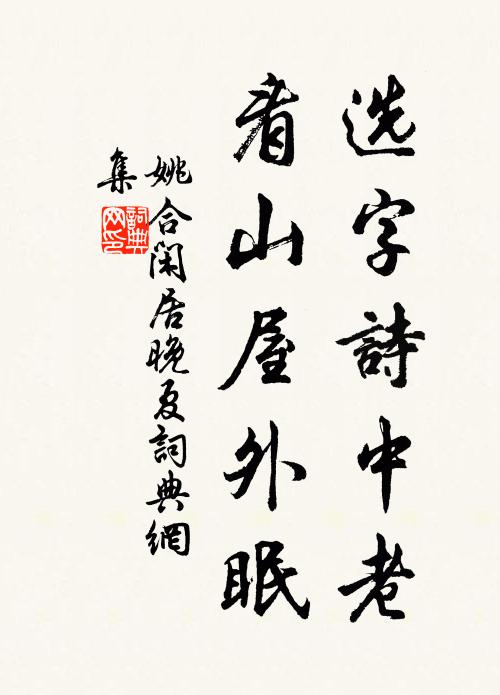 选字詩中老
看山屋外眠
姚合閑居晚夏詞典網
集
詞典
网印